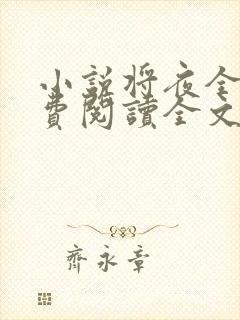 小説將夜全
費閱讀全文
齊永章